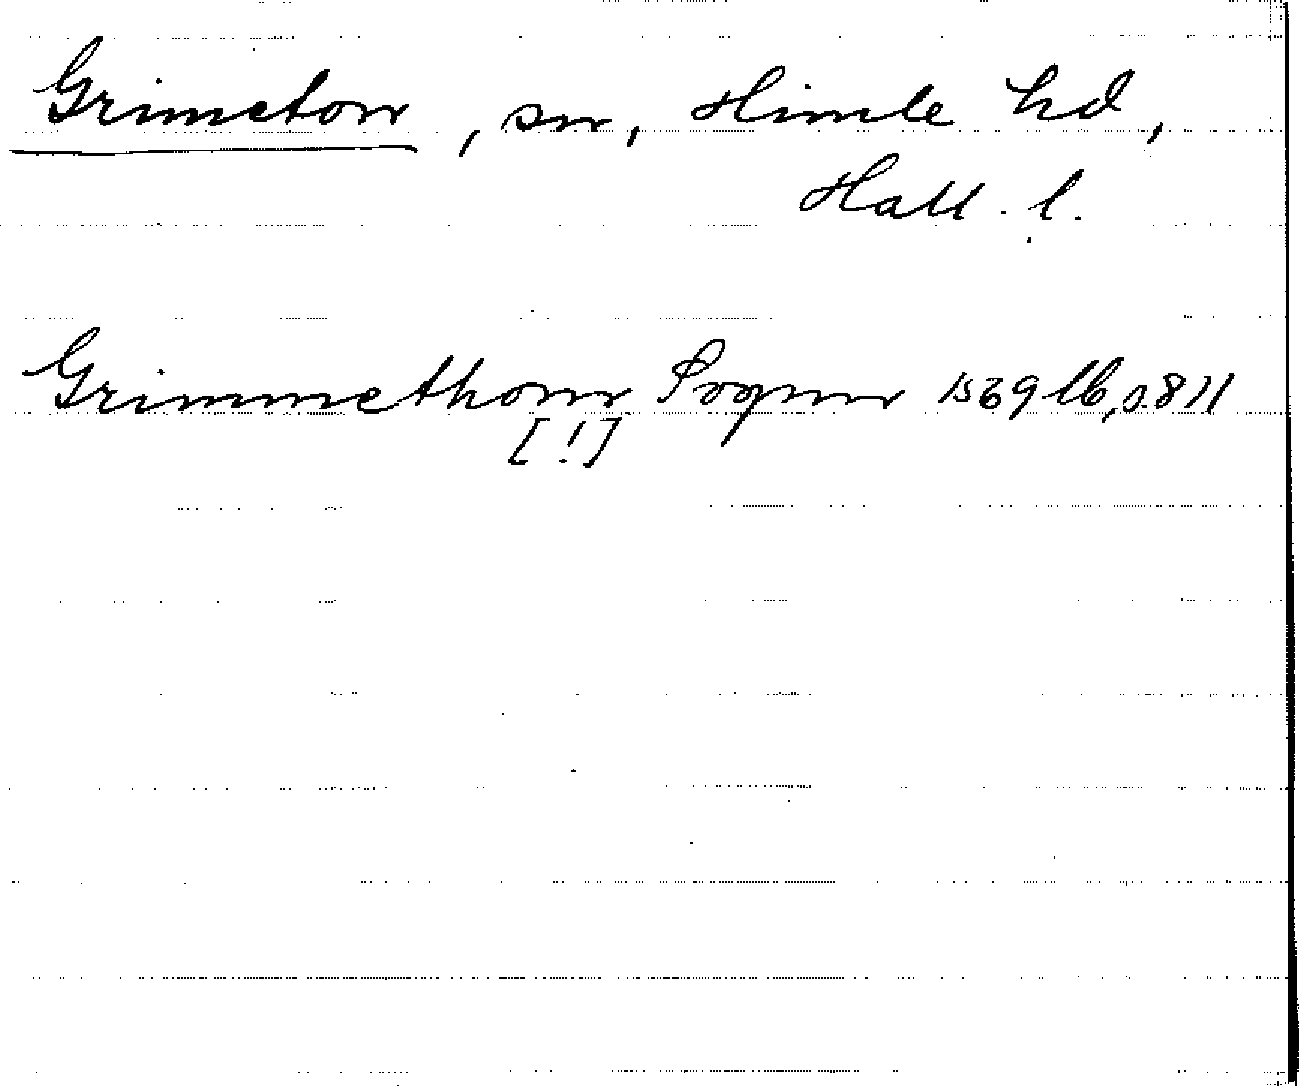 Grimeton, sn, Himle hd,
Hall. l.
Grimmethonn Sognn 1569 lb, s. 811
[!]